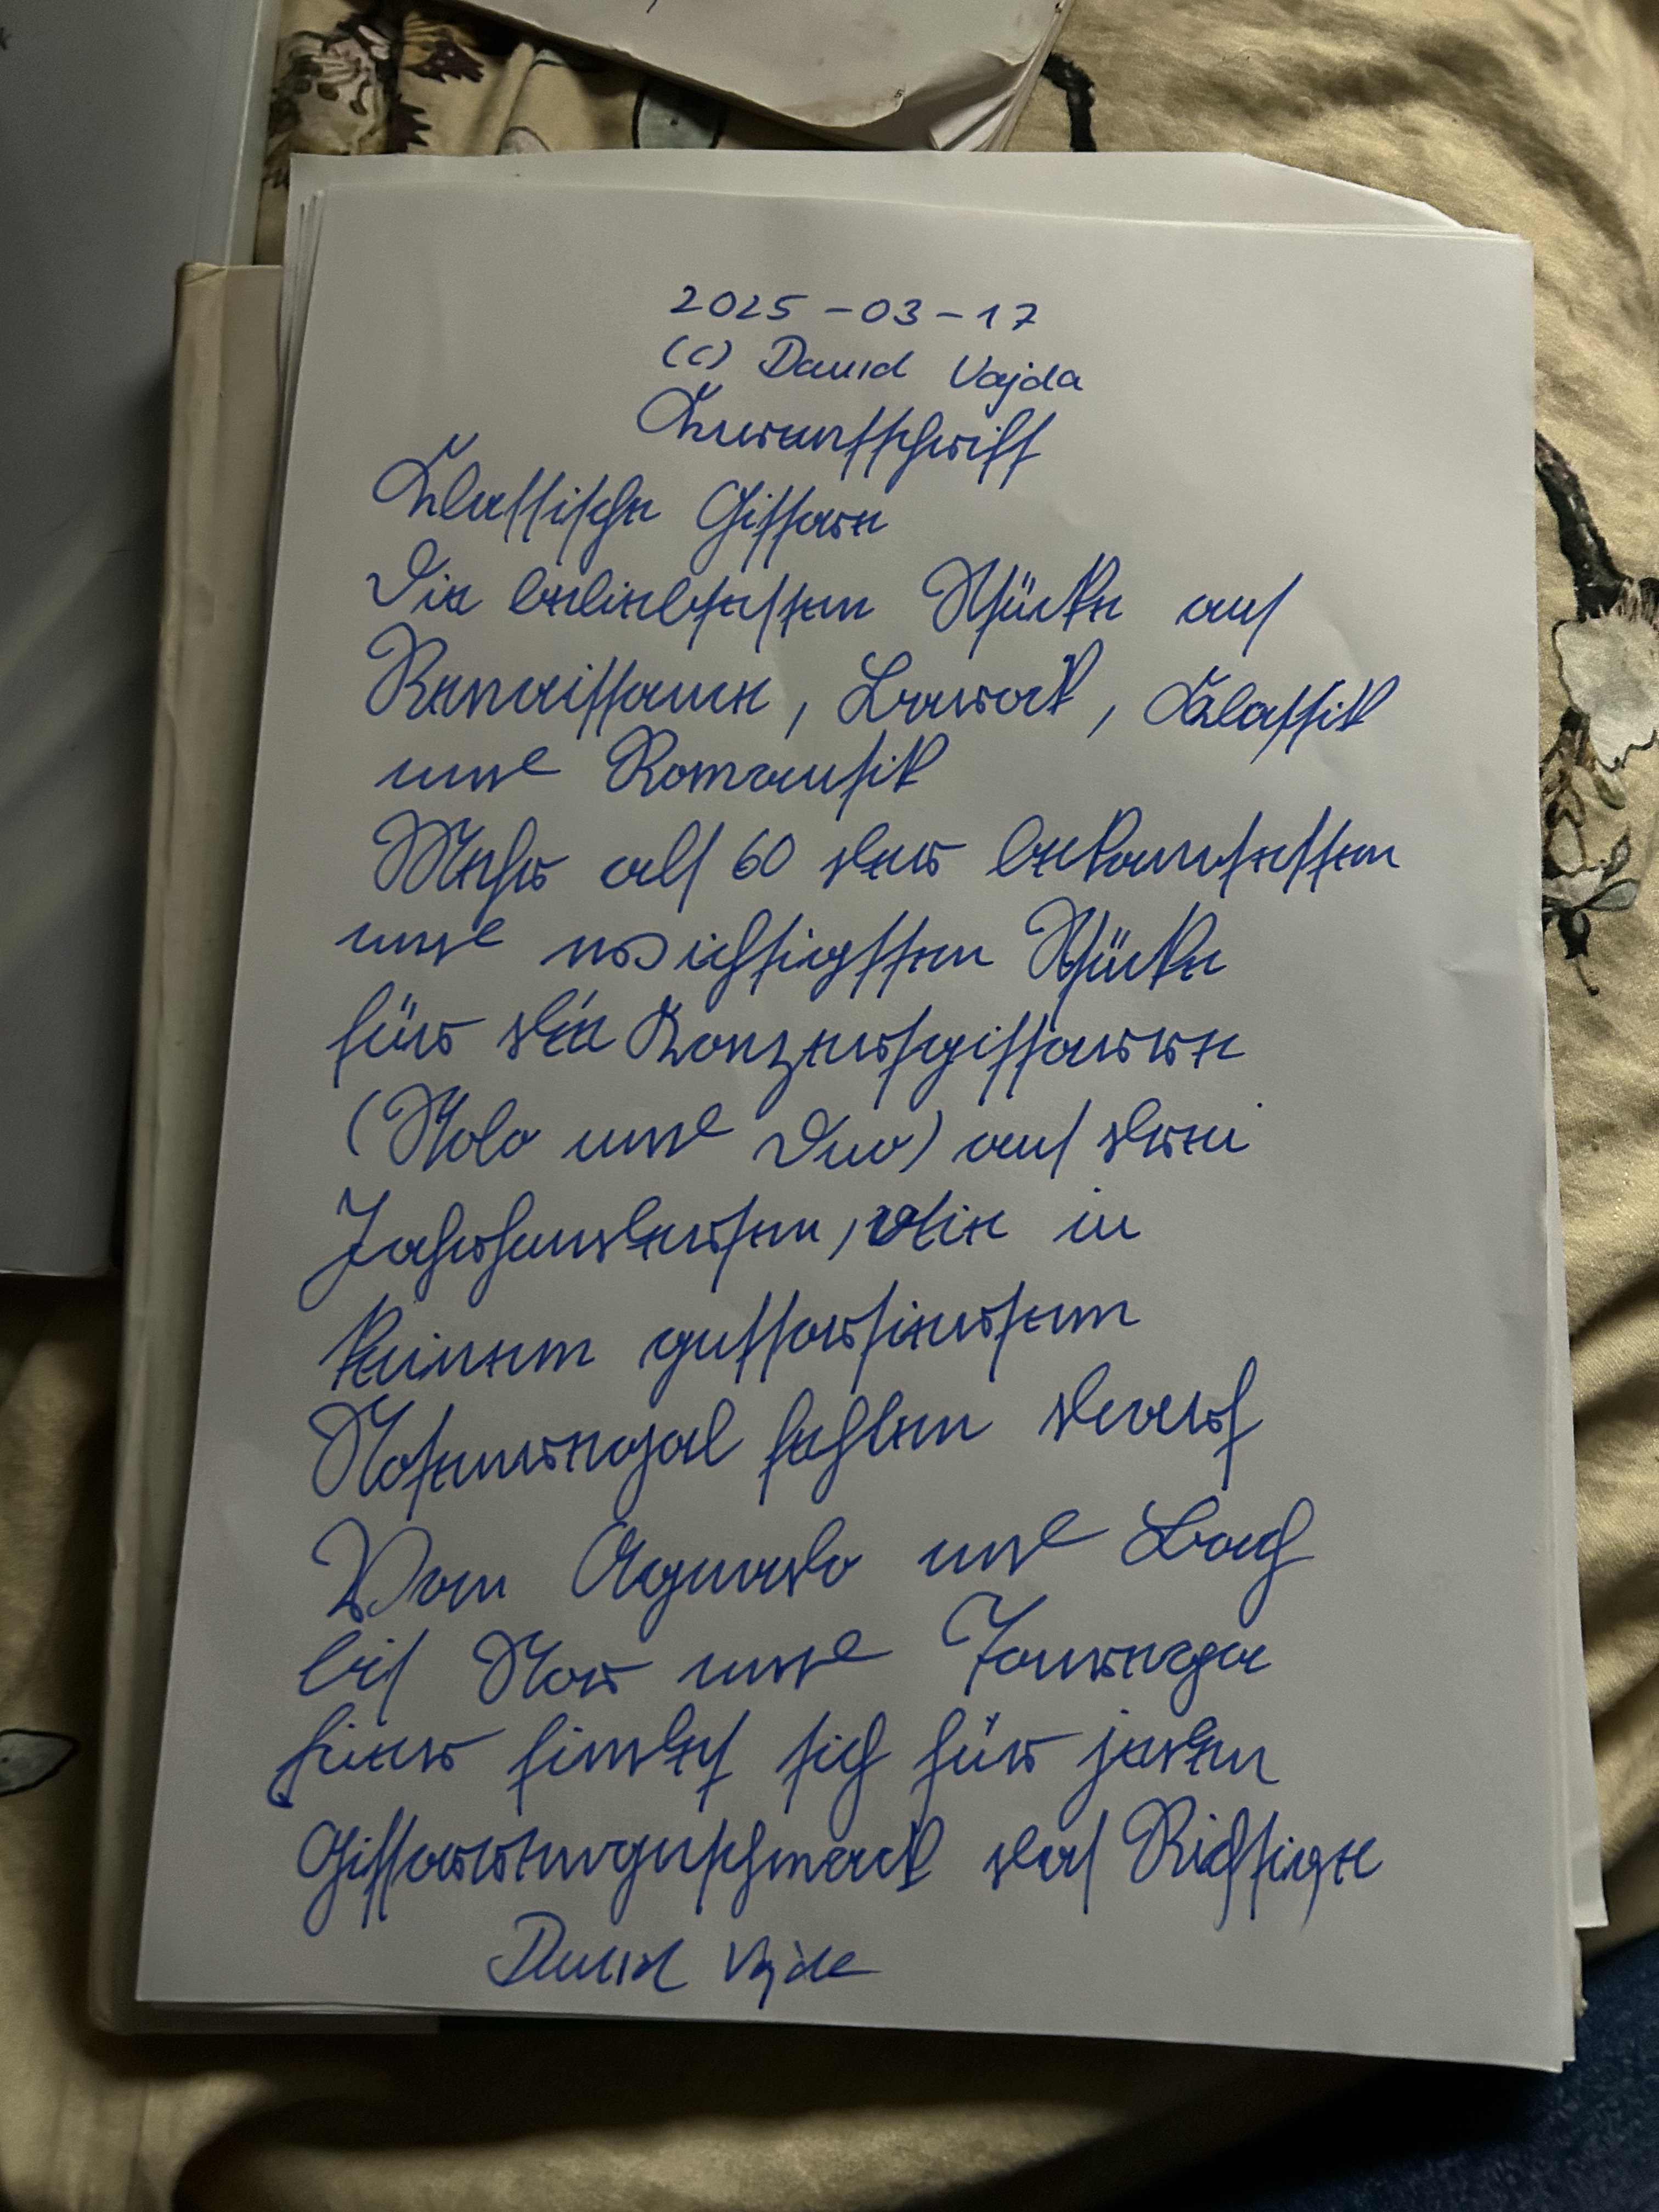 2025-03-17
(c) David Vajda
Kurrentschrift
Klassische Gitarre
Die beliebtesten Stücke aus
Renaissance, Barock, Klassik
und Romantik
Mehr als 60 der bekanntesten
und wichtigsten Stücke
für die Konzertgitarre
(Solo und Duo) aus drei
Jahrhunderten, die in
keinem gutsortierten
Notenregal fehlen darf
Von Aguado und Bach
bis Sor und Tarrega
hier findet sich für jeden
Gitarrengeschmack das Richtige
David Vajda